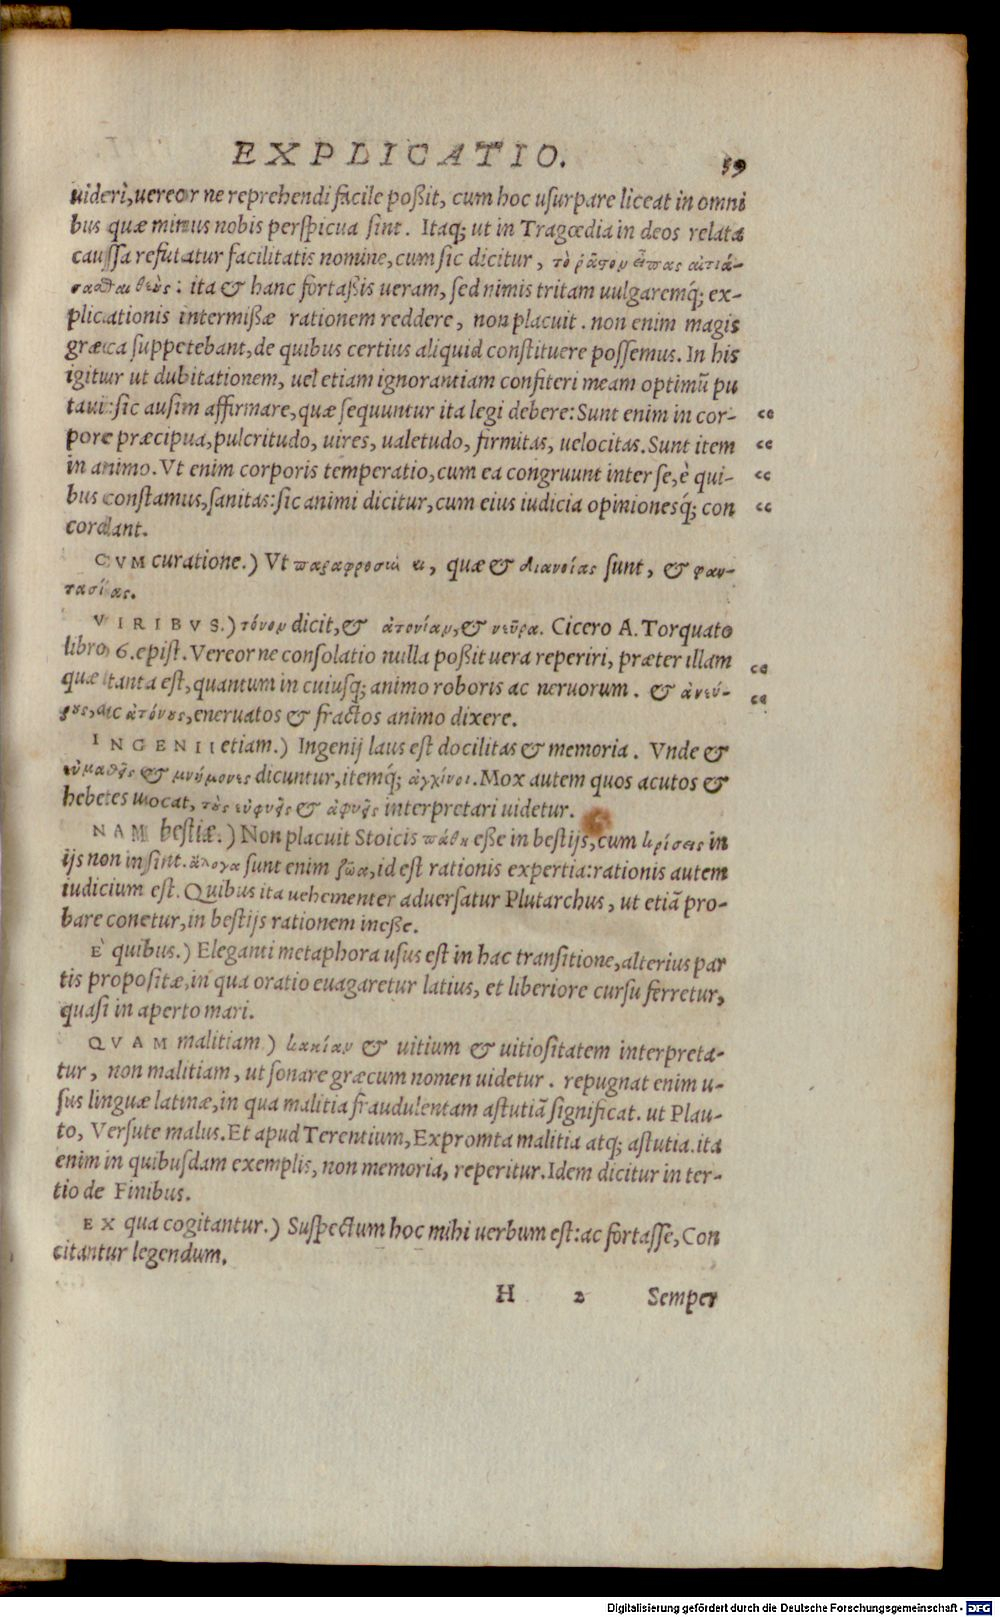 EXPLICATIO. 59
uideri, uereor ne reprehendi facile poßit, cum hoc usurpare liceat in omni
bus quæ minus nobis perspicua sint. Itaq; ut in Tragœdia in deos relata
caussa refutatur facilitatis nomine, cum sic dicitur, τὸ ῥᾷστον ἅπας αἰτιά-
σασθαι θεούς: ita & hanc fortaßis ueram, sed nimis tritam uulgaremq́; ex-
plicationis intermißæ rationem reddere, non placuit. non enim magis
græca suppetebant, de quibus certius aliquid constituere possemus. In his
igitur ut dubitationem, uel etiam ignorantiam confiteri meam optimū pu
taui: sic ausim affirmare, quæ sequuntur ita legi debere: Sunt enim in cor- “
pore præcipua, pulcritudo, uires, ualetudo, firmitas, uelocitas. Sunt item “
in animo. Vt enim corporis temperatio, cum ea congruunt inter se, è qui- “
bus constamus, sanitas: sic animi dicitur, cum eius iudicia opinionesq́; con “
cordant.
CVM curatione.) Vt παραφροσύναι, quæ & διανοίας sunt, & φαν-
τασίας.
VIRIBVS.) τόνον dicit, & ἀτονίαν, & νεῦρα. Cicero A. Torquato
libro 6. epist. Vereor ne consolatio nulla poßit uera reperiri, præter illam “
quæ tanta est, quantum in cuiusq; animo roboris ac neruorum. & ἀνεύ- “
ρους, ac ἀτόνους, eneruatos & fractos animo dixere.
INGENII etiam.) Ingenij laus est docilitas & memoria. Vnde &
εὐμαθεῖς & μνήμονες dicuntur, itemq́; ἀγχίνοι. Mox autem quos acutos &
hebetes uocat, τοὺς εὐφυεῖς & ἀφυεῖς interpretari uidetur.
NAM bestiæ.) Non placuit Stoicis πάθη eße in bestijs, cum κρίσεις in
ijs non in sint. ἄλογα sunt enim ζῶα, id est rationis expertia: rationis autem
iudicium est. Quibus ita uehementer aduersatur Plutarchus, ut etiā pro-
bare conetur, in bestijs rationem ineße.
È quibus.) Eleganti metaphora usus est in hac transitione, alterius par
tis propositæ, in qua oratio euagaretur latius, et liberiore cursu ferretur,
quasi in aperto mari.
QVAM malitiam.) κακίαν & uitium & uitiositatem interpreta-
tur, non malitiam, ut sonare græcum nomen uidetur. repugnat enim u-
sus linguæ latinæ, in qua malitia fraudulentam astutiā significat. ut Plau-
to, Versute malus. Et apud Terentium, Expromta malitia atq; astutia. ita
enim in quibusdam exemplis, non memoria, reperitur. Idem dicitur in ter-
tio de Finibus.
EX qua cogitantur.) Suspectum hoc mihi uerbum est: ac fortasse, Con
citantur legendum.
H 2 Semper
Digitalisierung gefördert durch die Deutsche Forschungsgemeinschaft - DFG